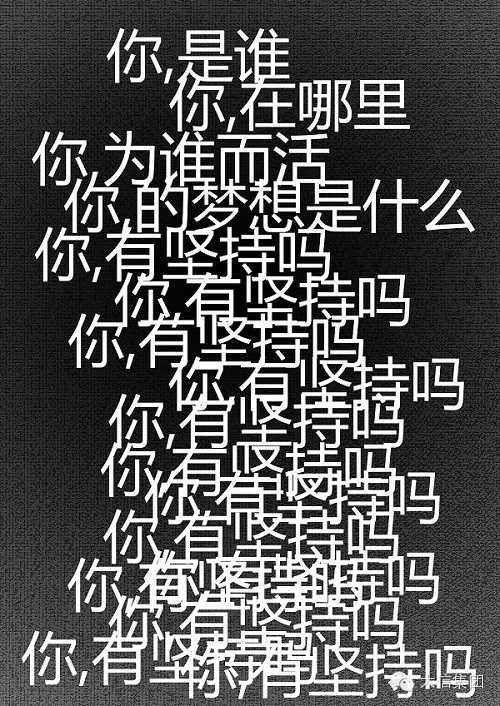 你,是谁
你,在哪里
你,为谁而活
你,的梦想是什么
你,有坚持吗
你,有坚持吗
你,有坚持吗
你,有坚持吗
你,有坚持吗
你,有坚持吗
你,有坚持吗
你,有坚持吗
你,有坚持吗
你,有坚持吗
你,有坚持吗
你,有坚持吗
你,有坚持吗
信集团